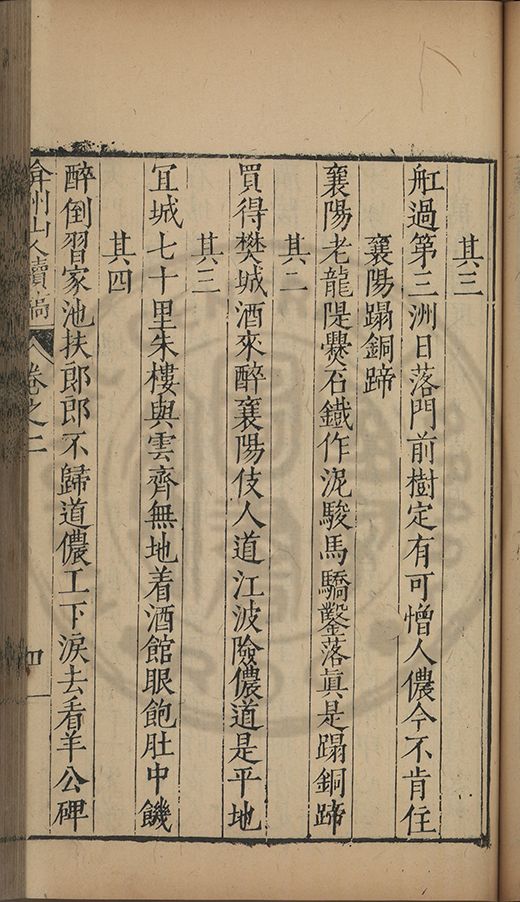 其三
舡過第三洲日落門前樹定有可憎人儂今不肯住
襄陽蹋銅蹄
襄陽老龍隄礬石鐵作泥駿馬驕鑿落眞是蹋銅蹄
其二
買得樊城酒來醉襄陽伎人道江波險儂道是平地
其三
宜城七十里朱樓與雲齊無地着酒館眼飽肚中饑
其四
醉倒習家池扶郎郎不歸道儂工下淚去看羊公碑
弇州山人續稿 卷之二 四